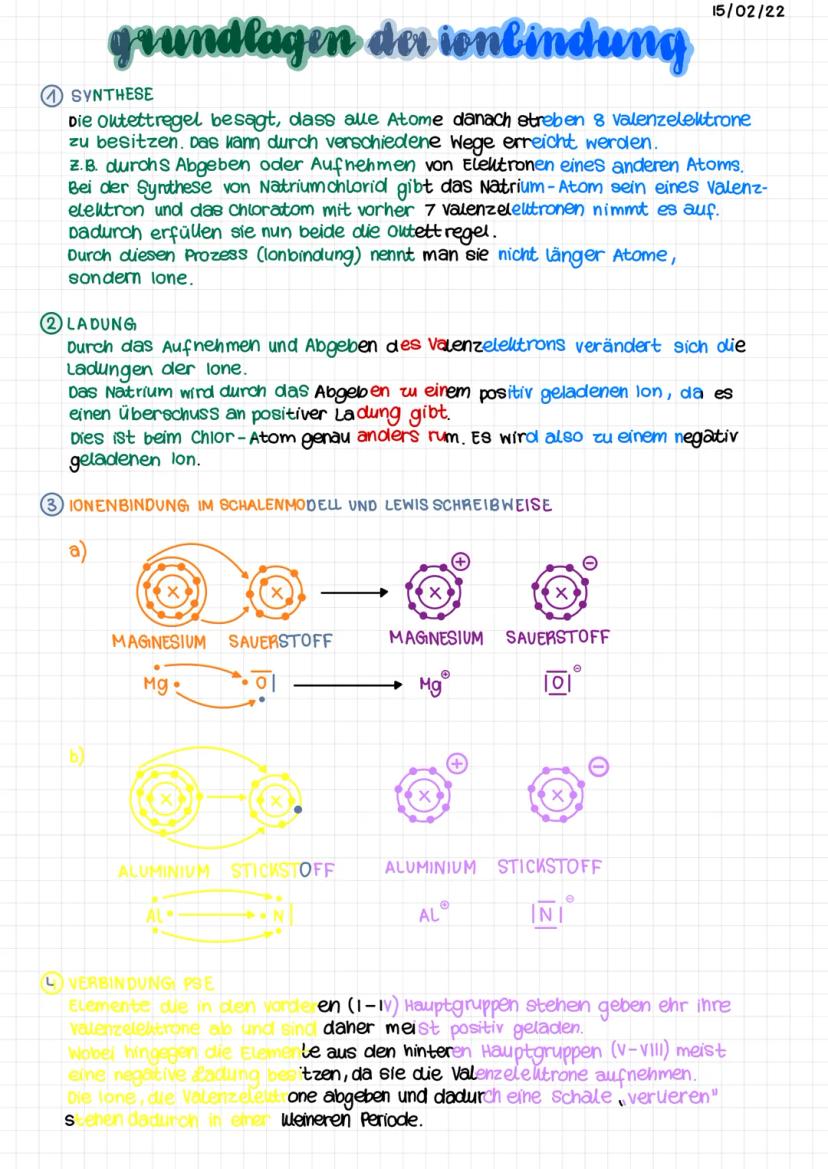 15/02/22
grundlagen der ionbindung
1 SYNTHESE
Die Oktettregel besagt, dass alle Atome danach streben 8 Valenzelektrone
zu besitzen. Das kann durch verschiedene Wege erreicht werden.
Z.B. durchs Abgeben oder Aufnehmen von Elektronen eines anderen Atoms.
Bei der Synthese von Natriumchlorid gibt das Natrium-Atom sein eines Valenz-
elektron und das Chloratom mit vorher 7 Valenzelektronen nimmt es auf.
Dadurch erfüllen sie nun beide die Oktettregel.
Durch diesen Prozess (Ionbindung) nennt man sie nicht länger Atome,
sondern Ione.
2 LADUNG
Durch das Aufnehmen und Abgeben des Valenzelektrons verändert sich die
Ladungen der Ione.
Das Natrium wird durch das Abgeben zu einem positiv geladenen Ion, da es
einen Überschuss an positiver Ladung gibt.
Dies ist beim Chlor-Atom genau anders rum. Es wird also zu einem negativ
geladenen Ion.
3 IONENBINDUNG IM SCHALENMODELL UND LEWIS SCHREIBWEISE
a)
x x x + x -
MAGNESIUM SAUERSTOFF MAGNESIUM SAUERSTOFF
Mg O Mg+ O-
b)
x x x + x -
ALUMINIUM STICKSTOFF ALUMINIUM STICKSTOFF
Al N Al+ N-
4 VERBINDUNG PSE
Elemente die in den vorderen (I-IV) Hauptgruppen stehen geben ehr ihre
Valenzelektrone ab und sind daher meist positiv geladen.
Wobei hingegen die Elemente aus den hinteren Hauptgruppen (V-VIII) meist
eine negative Ladung besitzen, da sie die Valenzelektrone aufnehmen.
Die Ione, die Valenzelektrone abgeben und dadurch eine Schale „verlieren"
stehen dadurch in einer kleineren Periode.